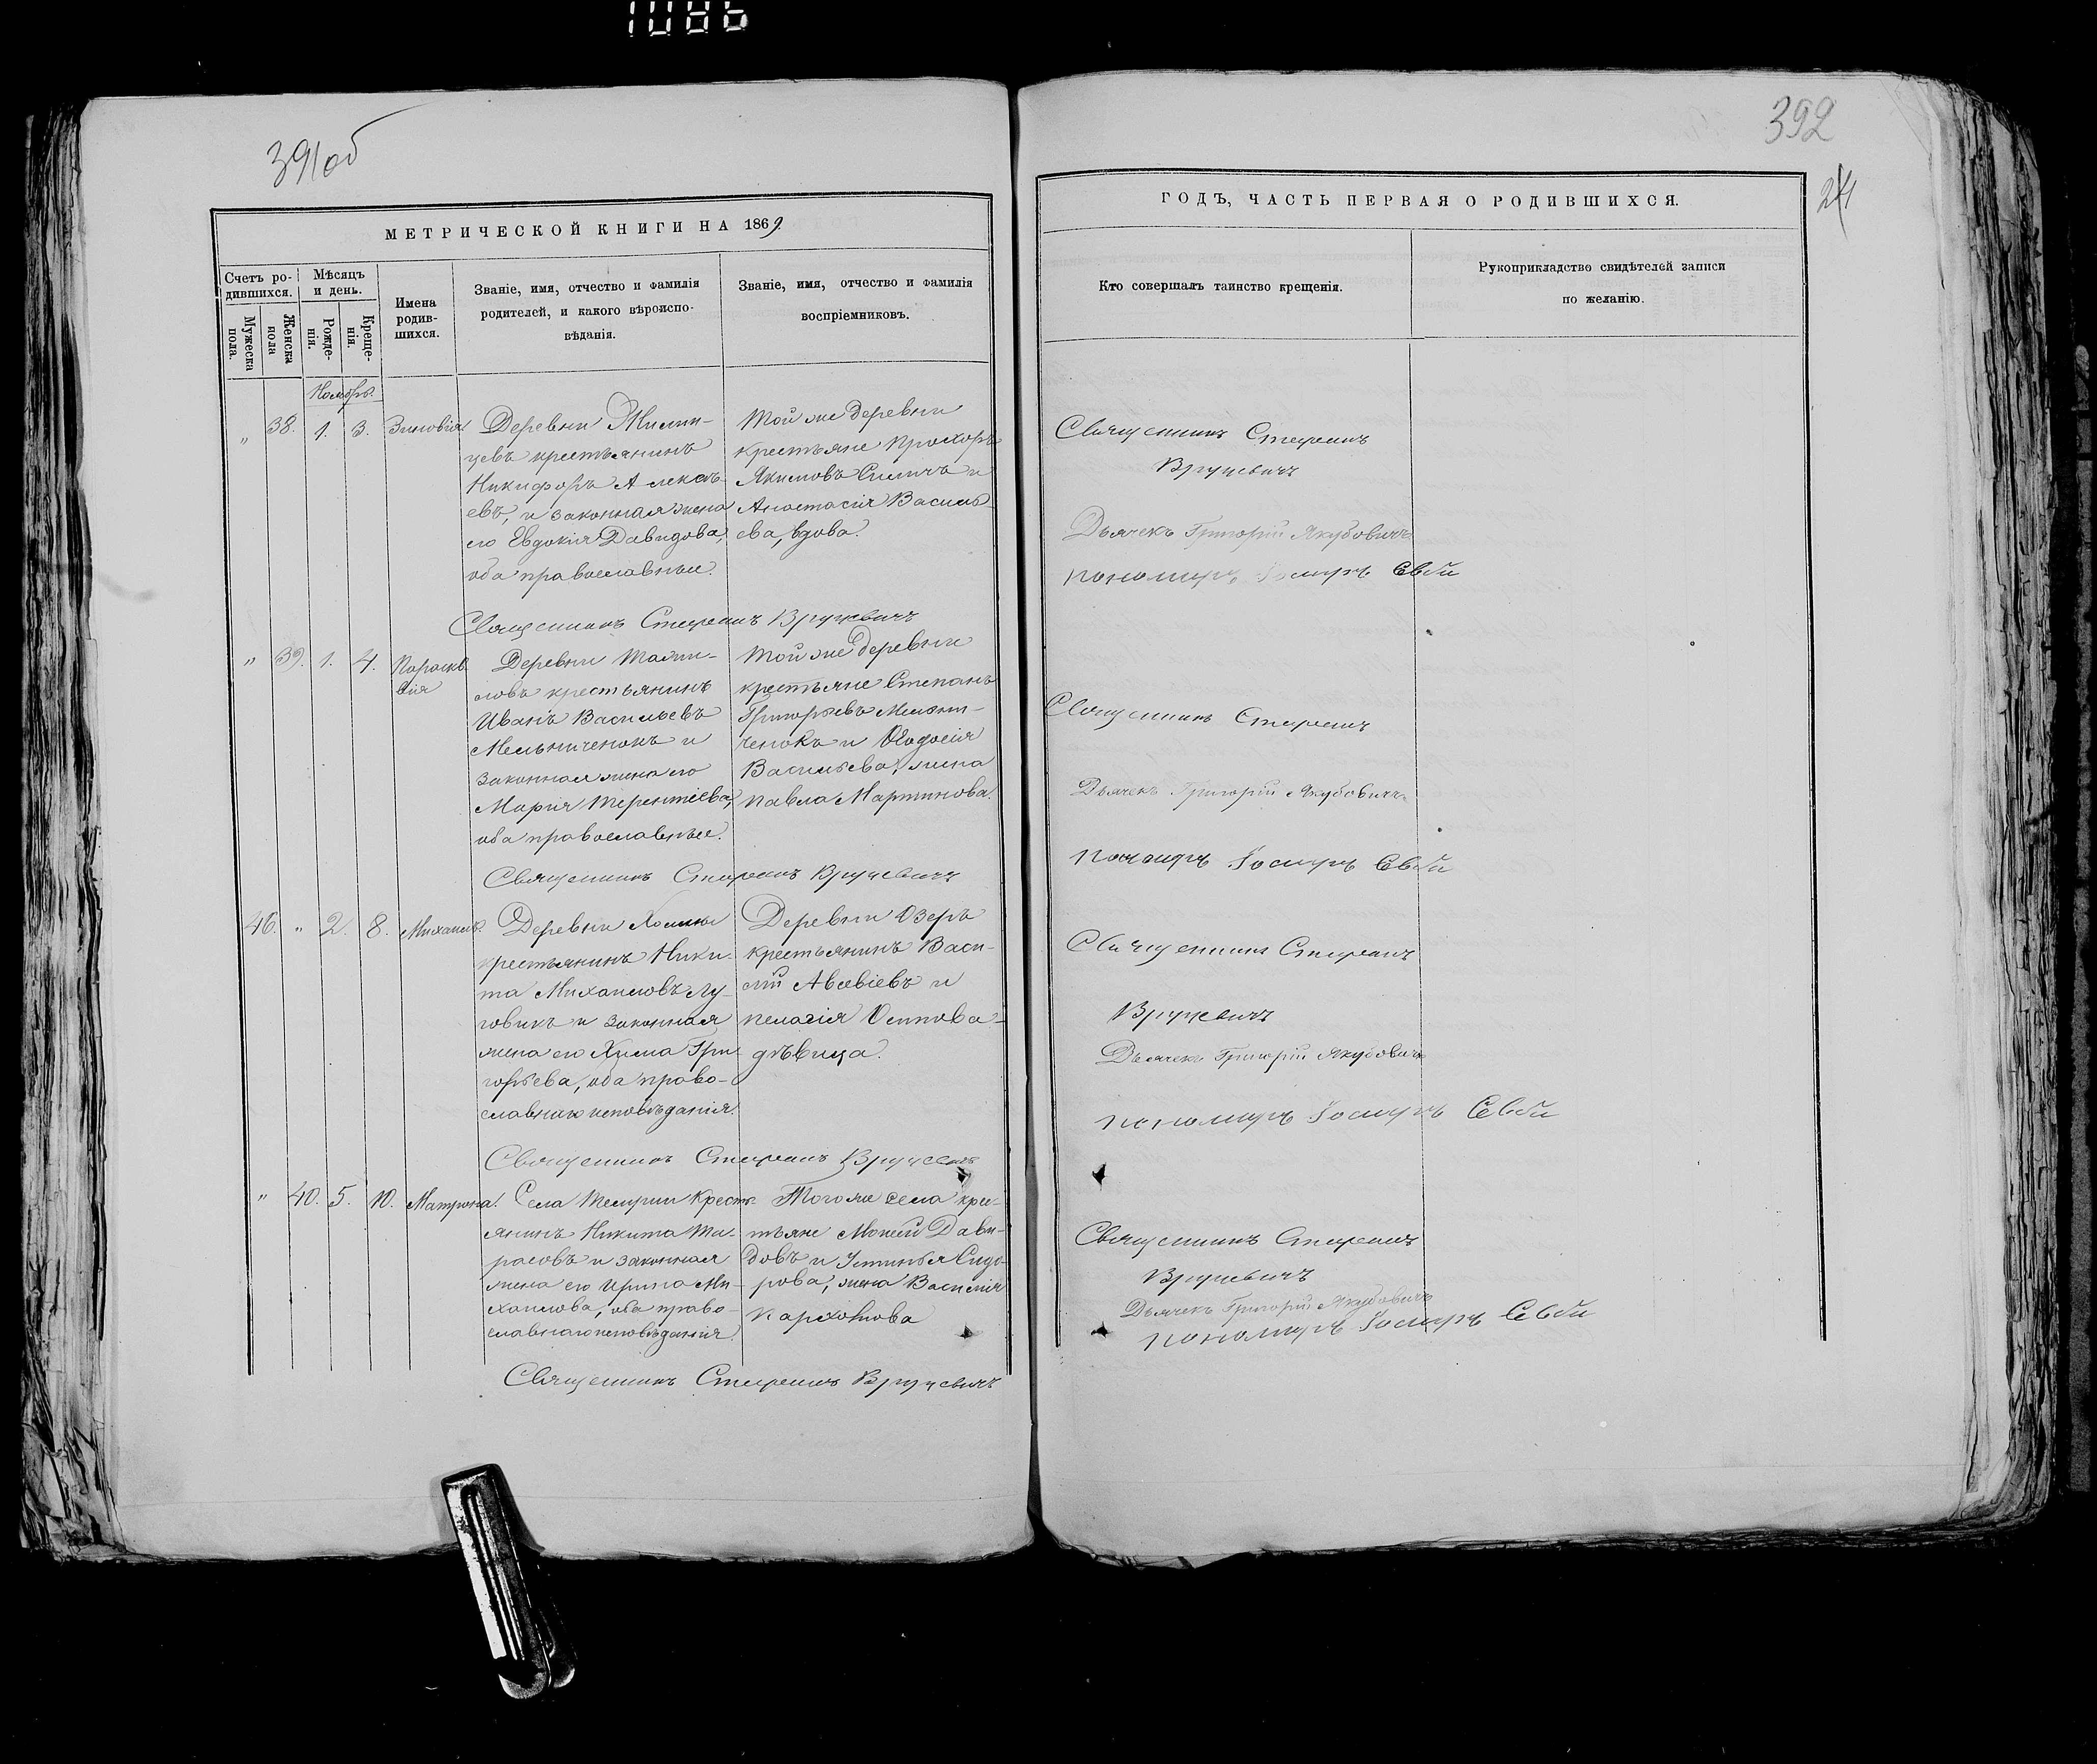 1086
391об
МЕТРИЧЕСКОЙ КНИГИ НА 1869
Счетъ ро-
дившихся.
Мужеска
пола.
Женска
пола
Мѣсяцъ
и день.
Рожде-
нія.
Креще-
нія.
Имена
родив-
шихся.
Званіе, имя, отчество и фамилія
родителей, и какого вѣроиспо-
вѣданія.
Званіе, имя, отчество и фамилія
воспріемниковъ.
Ноябрь.
" 38. 1. 3. Зиновія
Деревни
цевъ крестьянинъ
Никифоръ Алексѣ-
евъ, и законная жена
его Евдокія Давидова,
оба православные.
Той же деревни
крестьяне Прохоръ
Якимовъ и
Анастасія Василь-
ева, вдова.
Священникъ Стефанъ Вручевичъ
" 39. 1. 4. Параскѣ
вія
Деревни
ловъ крестьянинъ
Иванъ Васильевъ
Мельниченокъ и
законная жена его
Марія Терентіева,
оба православные.
Той же деревни
крестьяне Степанъ
Григорьевъ Мельни-
ченокъ и Ѳеодосія
Васильева, жена
Павла Мартинова.
Священникъ Стефанъ Вручевичъ
46. " 2. 8. Михаилъ.
Деревни
крестьянинъ Ники-
та Михаиловъ Лу-
говикъ и законная
жена его Гри-
горьева, оба право-
славнаго исповѣданія.
Деревни Озеръ
крестьянинъ Васи-
лій Авсѣвіевъ и
Пелагія Осипова-
дѣвица.
Священникъ Стефанъ Вручевичъ
" 40. 5. 10. Матрона.
Села Кресть-
янинъ Никита Та-
расовъ и законная
жена его Ирина Ми-
хаилова, оба право-
славнаго исповѣданія.
Того же села кре-
тьяне Мокей Дави-
довъ и Устинья Сидо-
рова, жена Василія
Священникъ Стефанъ Вручевичъ
392
24
ГОДЪ, ЧАСТЬ ПЕРВАЯ О РОДИВШИХСЯ.
Кто совершалъ таинство крещенія.
Рукоприкладство свидѣтелей записи
по желанію.
Священникъ Стефанъ
Вручевичъ
Дьячекъ Григорій Якубовичъ
пономарь Іосифъ
Священникъ Стефанъ
Дьячекъ Григорій Якубовичъ
пономарь Іосифъ
Священникъ Стефанъ
Вручевичъ
Дьячекъ Григорій Якубовичъ
пономарь Іосифъ
Священникъ Стефанъ
Вручевичъ
Дьячекъ Григорій Якубовичъ
пономарь Іосифъ